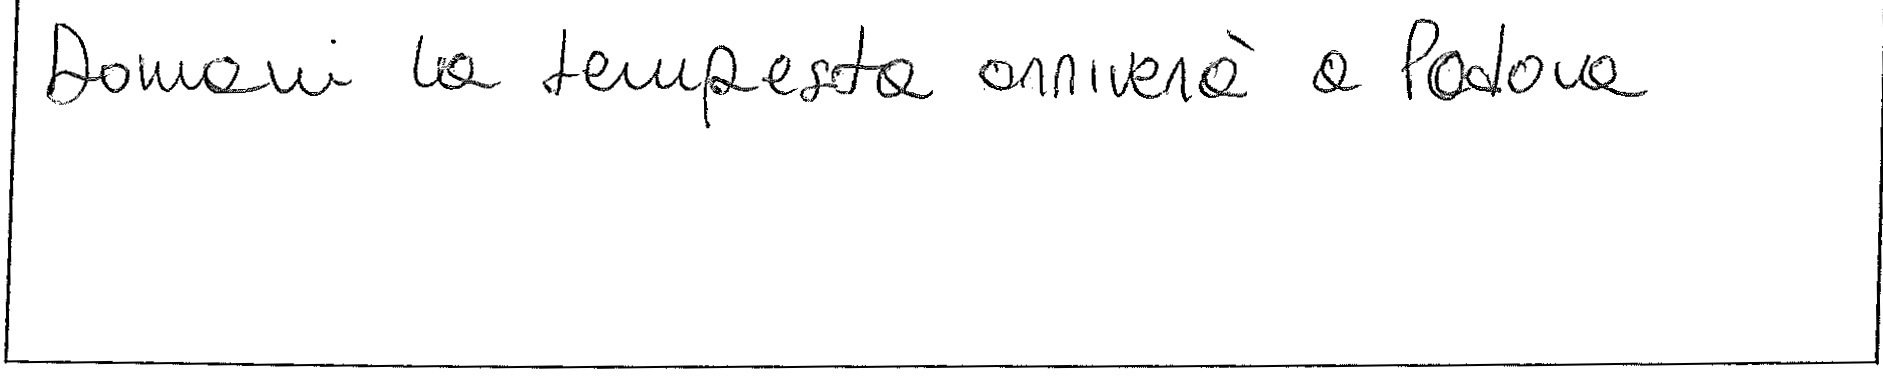 Domani la tempesta arriverà a Padova